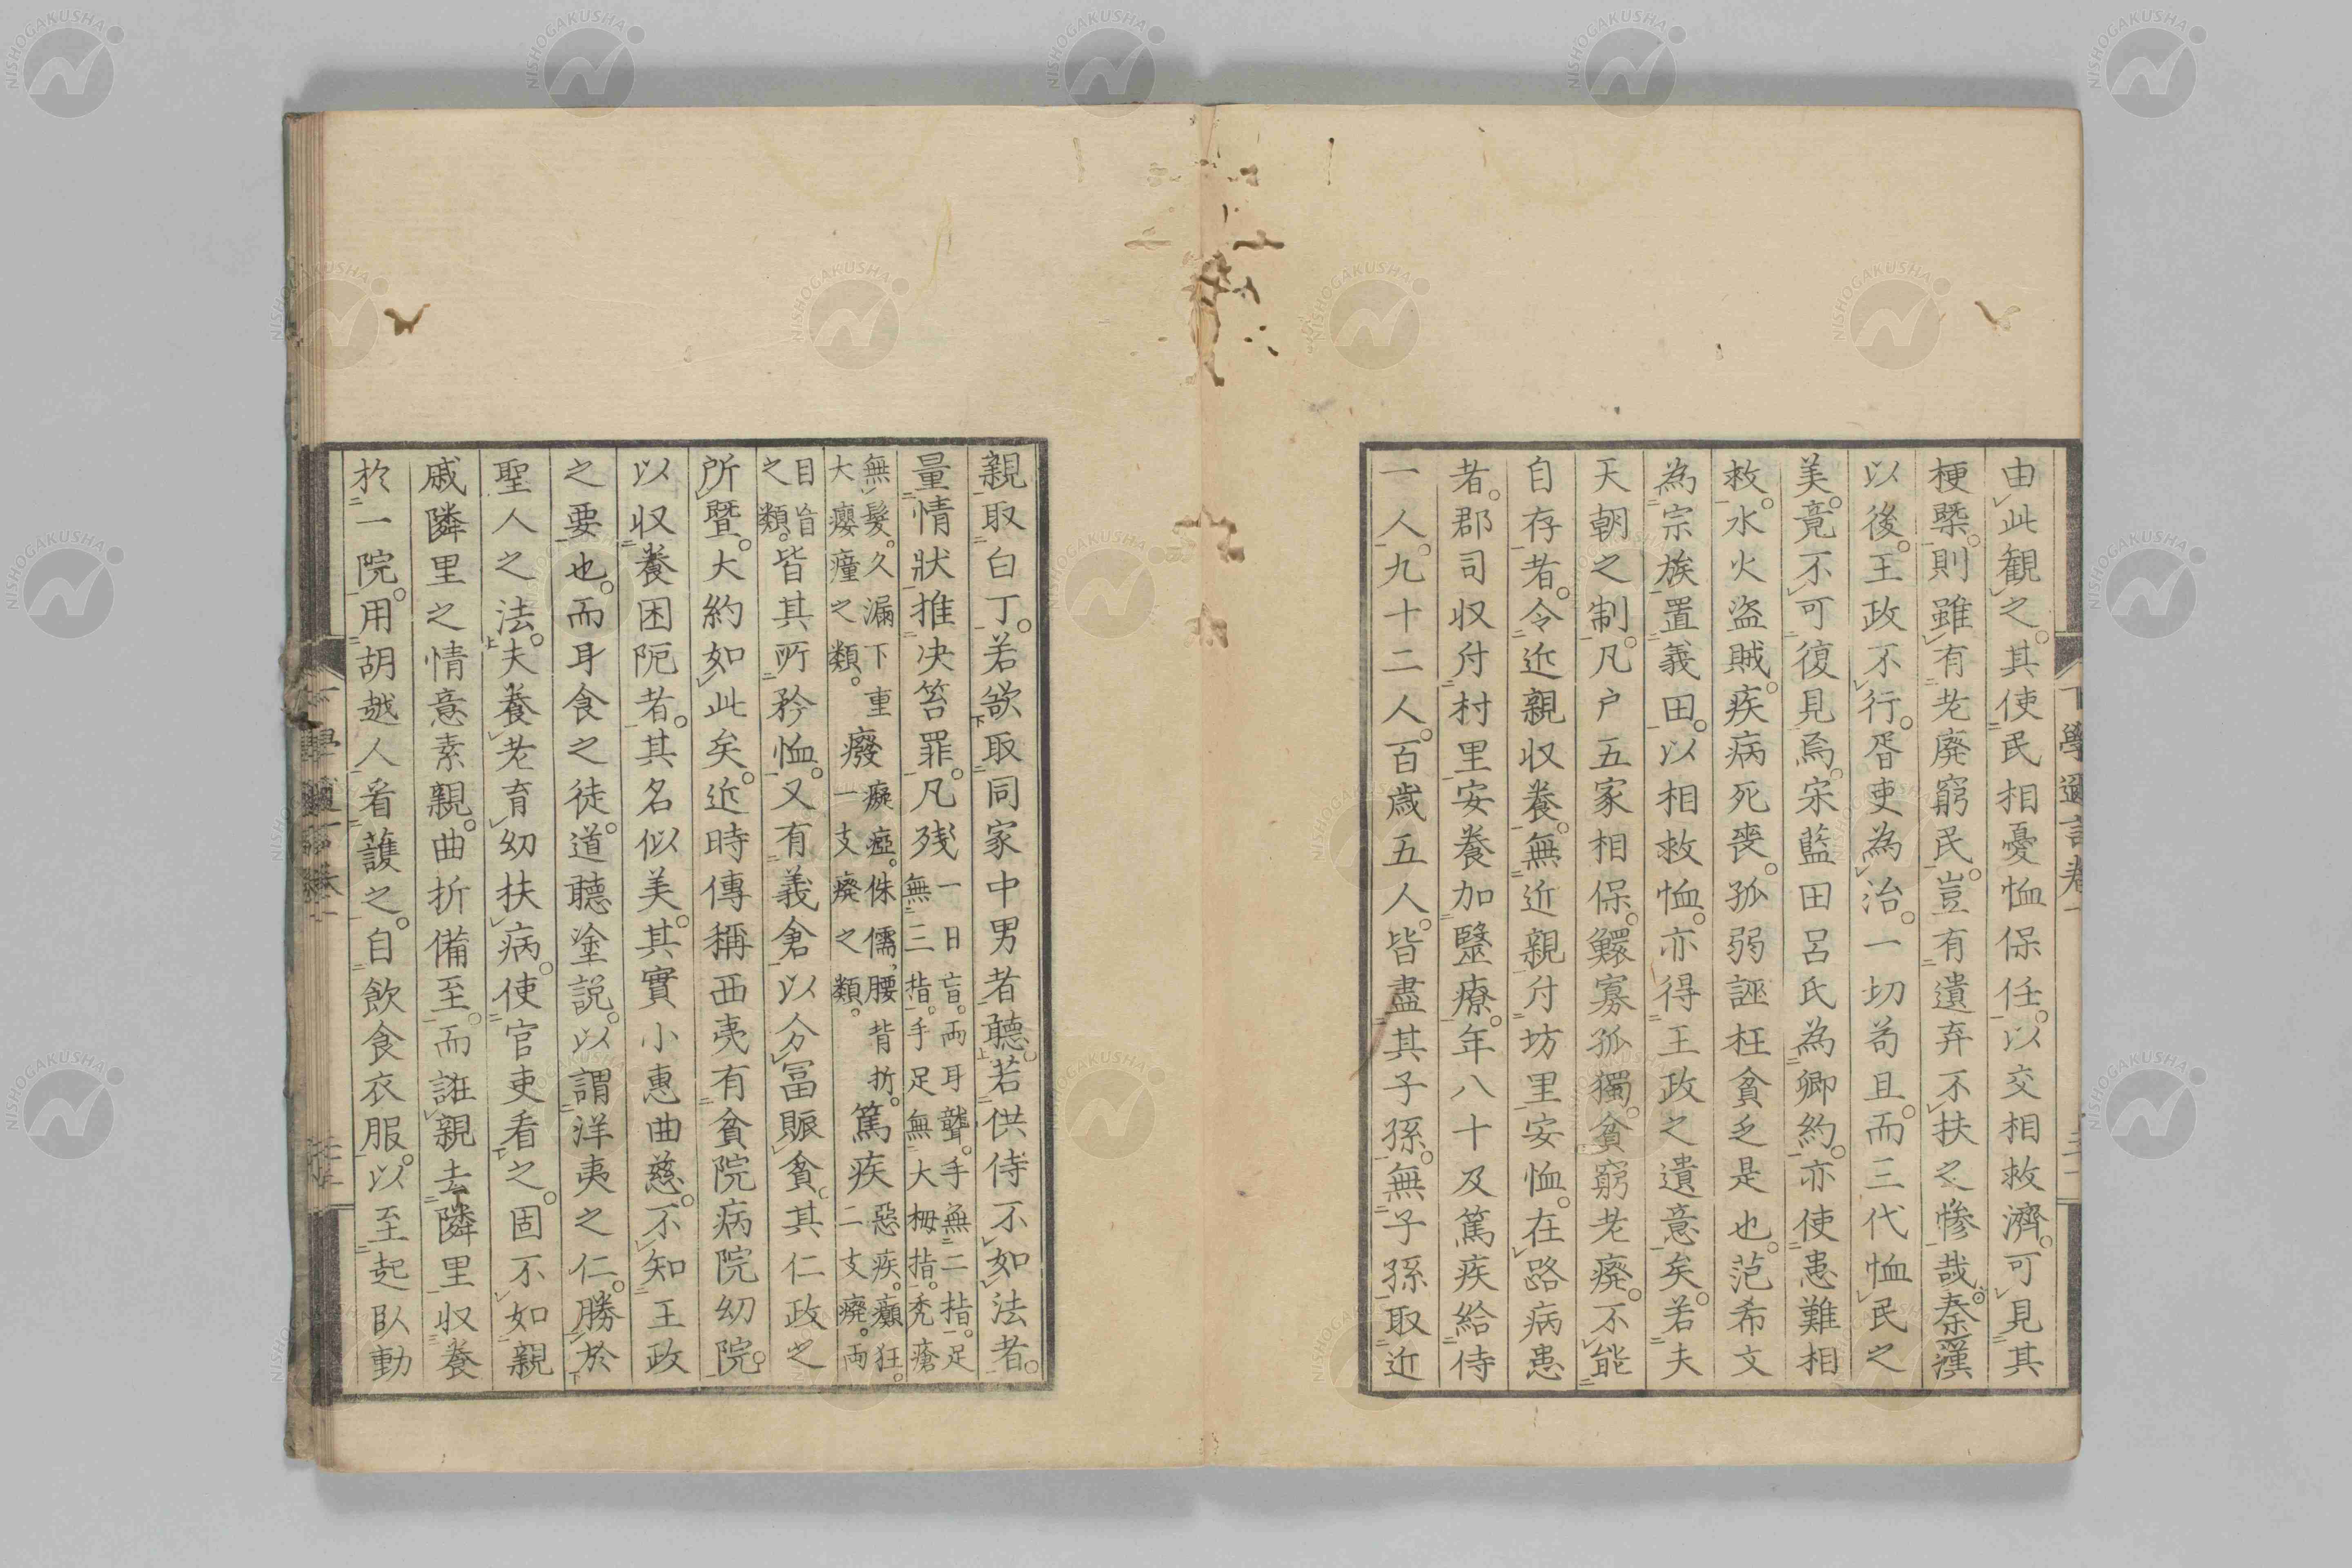 由此観之。其使民相憂恤保任。以交相救濟。可見其
梗槩。則雖有老廃窮民。豈有遺弃不扶之惨哉。秦漢
以後。王政不行。胥吏為治。一切苟且。而三代恤民之
美。竟不可復見焉。宋藍田呂氏為郷約。亦使患難相
救。水火盗賊。疾病死喪。孤弱誣枉貧乏是也。范希文
為宗族置義田。以相救恤。亦得王政之遺意矣。若夫
天朝之制。凡户五家相保。鰥寡孤獨。貧窮老癈。不能
自存者。令近親収養。無近親付坊里安恤。在路病患
者。郡司収付村里安養加醫療。年八十及篤疾給侍
一人。九十二人。百歳五人。皆盡其子孫。無子孫取近
親。取白丁。若欲取同家中男者聽。若供侍不如法者。
量情状推决笞罪。凡残一目盲。両耳聾。手無二指。足
無三指。手足無大拇指。秃瘡
無髮。久漏下重
大癭瘇之類。癈癡瘂。侏儒、腰背折。
一支癈之類。篤疾惡疾。癲狂。
二支癈。両
目盲
之類。皆其所矜恤。又有義倉。以分冨賑貧。其仁政之
所曁。大約如此矣。近時傳稱西夷有貧院病院幼院。
以収養困阨者。其名似美。其實小惠曲慈。不知王政
之要也。而耳食之徒。道聽塗説。以謂洋夷之仁。勝於
聖人之法。夫養老育幼扶病。使官吏看之。固不如親
戚隣里之情意素親。曲折備至。而誑親去隣里。収養
於一院。用胡越人看護之。自飲食衣服。以至起臥動
下學邇言卷一
NISHOGAKUSHA